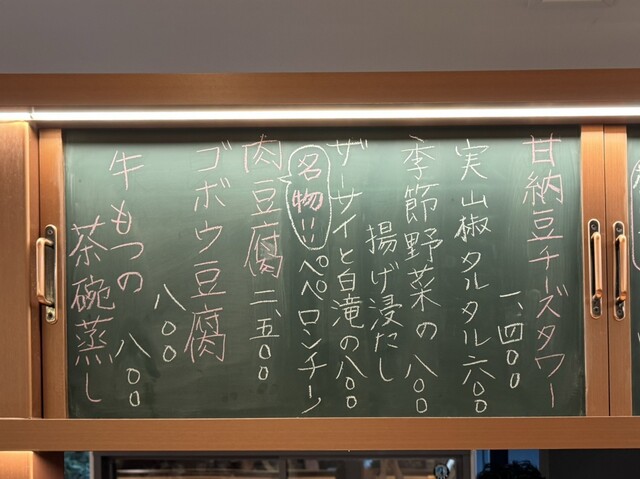 甘納豆チーズタワー
一、四〇〇
実山椒タルタル 六〇〇
季節野菜の
揚げ浸だし 八〇〇
ザーサイと白滝の 八〇〇
ペペロンチーノ
名物!!
肉豆腐 二、五〇〇
ゴボウ豆腐
八〇〇
牛もつの 八〇〇
茶碗蒸し